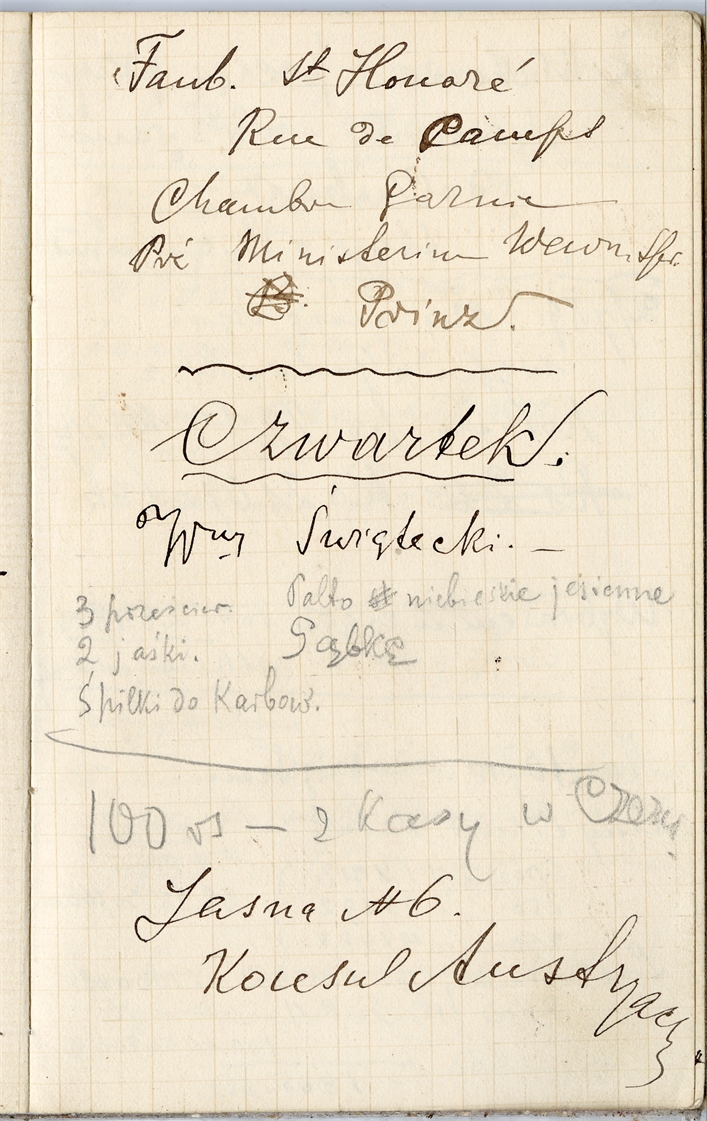 Faub. St Honoré
Rue de
Chambre Garnie
Ministerium Wewn. Spr.
Prinz.
Czwartek.
Świętecki. —
3 prześcier. Palto niebieskie jesienne
2 jaśki. Gąbkę
Śpilki do Karbow.
100 rs — z Kasy w
Jasna № 6.
Konsul Austryacki